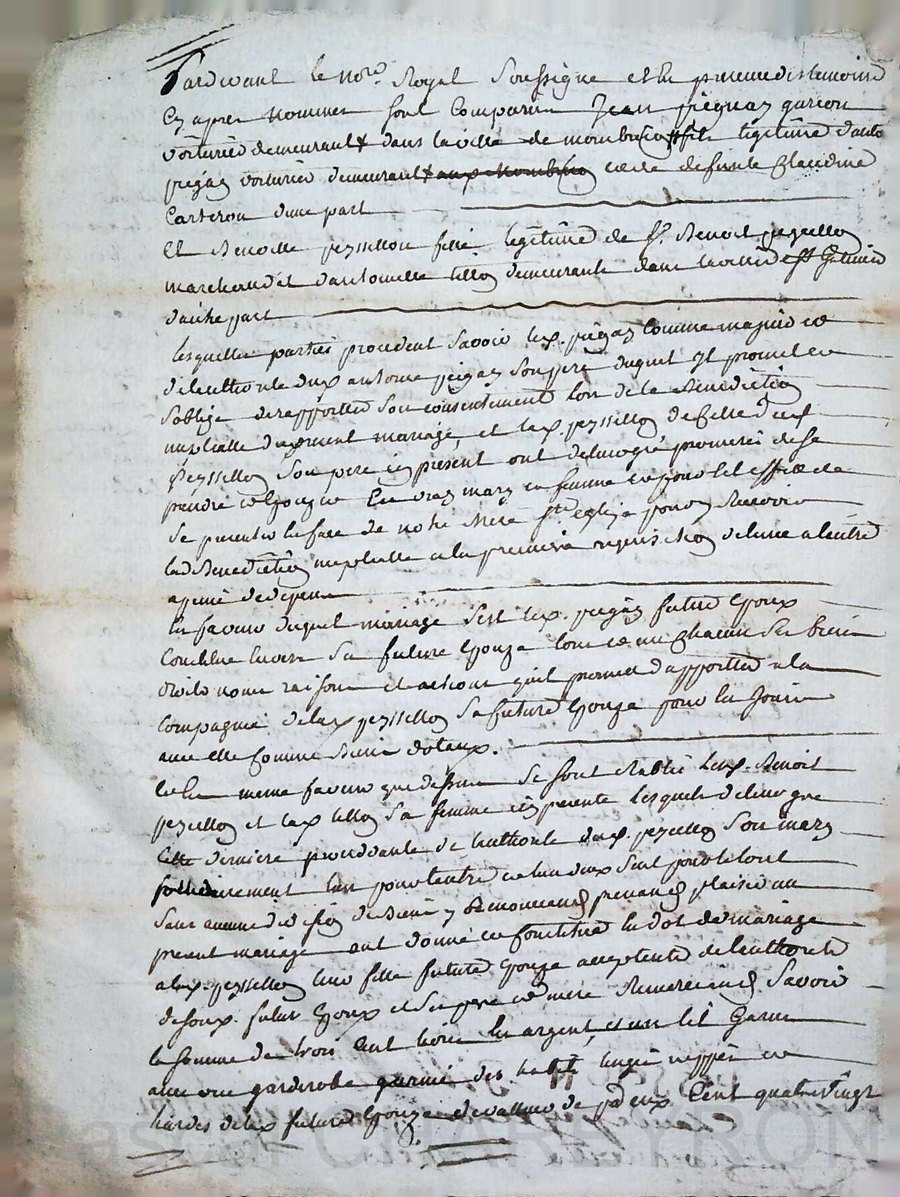 Pardevant le nore Royal Soussigné et en presence des temoins
Cy apres nommés sont Comparus Jean garçon
voiturier demeurant dans la ville de fils legitime d'anto
voiturier demeurant et de defunte Claudine
d'une part
Et Benoitte peyssellon fille legitime de Sr. Benoit peyssellon
marchand et d'antoinette demeurante dans la ville de St Galmier
d'autre part
lesquelles parties procedent Savoir led. Comme majeur et
de l'authorité dud. antoine Son pere duquel Il promet et
s'oblige de rapporter Son consentement lors de la Benediction
nuptialle du present mariage, et lad. peyssellon de celle dud.
peyssellon Son pere icy present ont de leur gré promis de se
prendre et Epouser En vray mary et femme et pour cet effet de
se presenter En face de notre Mere Ste eglize pour y Recevoir
la Benediction nuptialle a la premiere requisition de l'une a l'autre
a peine de depens
En faveur duquel mariage S'est led. futur Epoux
Constitué Envers Sa future Epouze tous et un Chacun Ses biens
droits noms raisons et actions qu'il promet d'apporter a la
Compagnie de lad. peyssellon Sa future Epouze pour En Jouir
avec elle Comme Biens dotaux.
En la meme faveur que dessus Se sont Etablis led. Benoit
peyssellon et lad. Sa femme icy presente Lesquels de leur gré
cette derniere procedante de l'authorité dud. peyssellon Son mary
sollidairement l'un pour l'autre et l'un d'eux Seul pour le tout
Sans aucune division de Biens y Renonceans prenans plaisir au
present mariage ont donné et Constitué En dot de mariage
a lad. peyssellon leur fille future Epouze acceptente de l'authorité
de Soud. futur Epoux et Ses pere et mere Remerciens Savoir
la Somme de trois Cent livres En argent, et un lit Garni
avec une garderobe garnie des habits linges nippes et
hardes de lad. future Epouze de valleur de Cent quatre Vingt
CHAREYRON